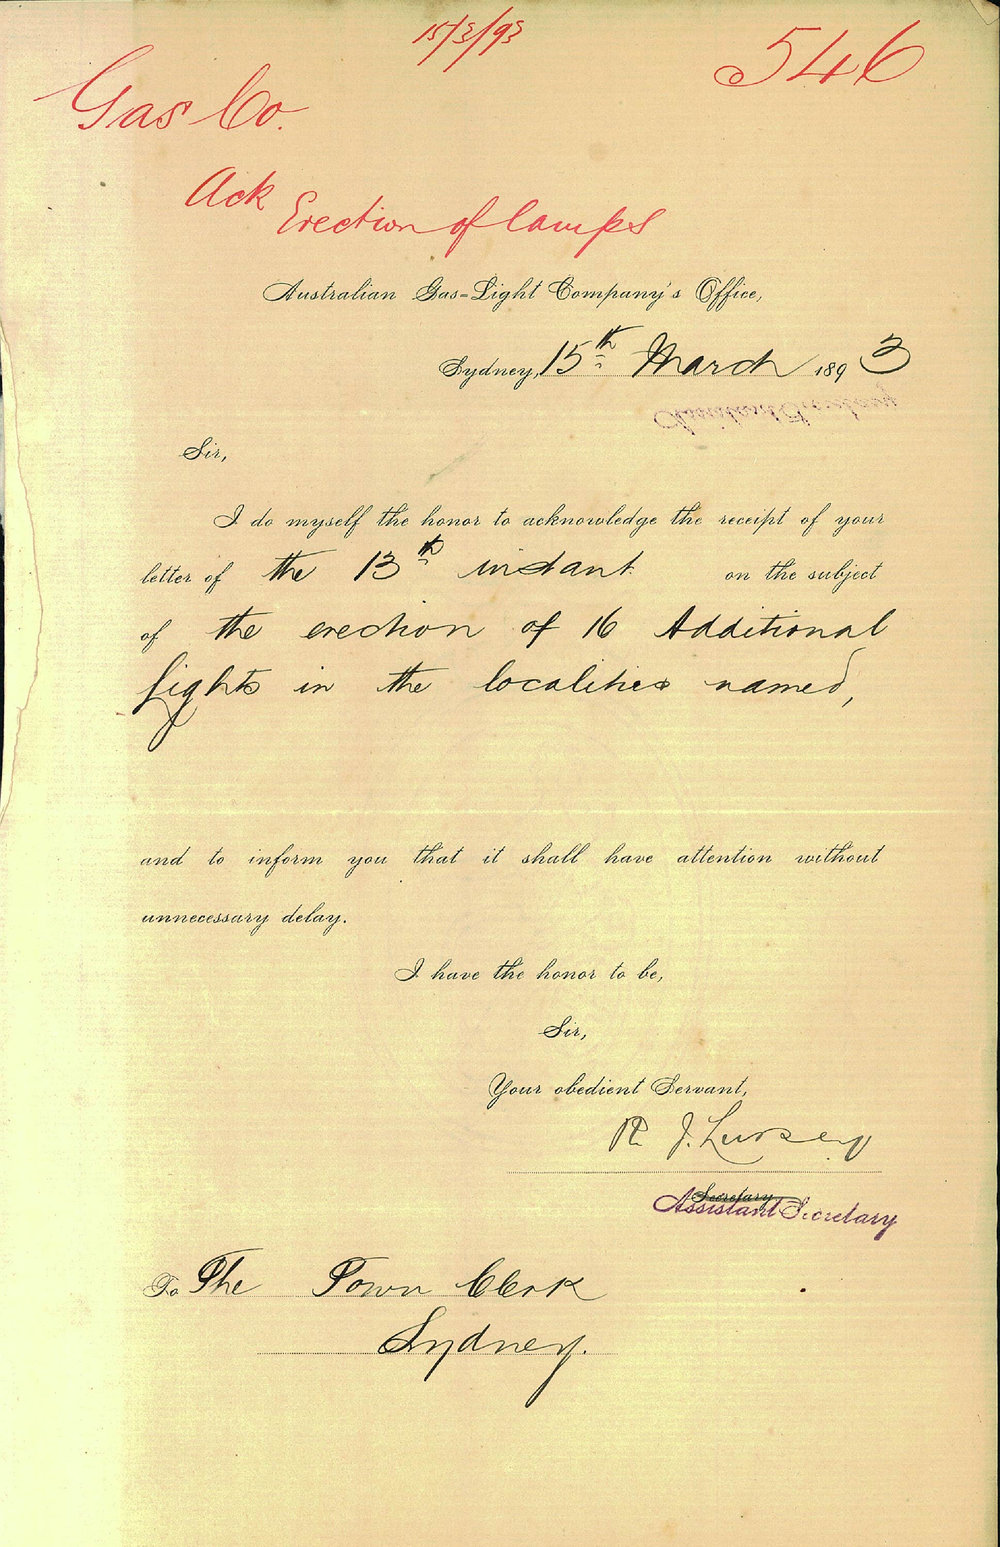 15/3/93
546
Gas Co.
Ack
Erection of lamps
Australian Gas-Light Company's Office,
Sydney, 15th March 1893
Assistant Secretary
Sir,
I do myself the honor to acknowledge the receipt of your
letter of the 13th instant on the subject
of the erection of 16 Additional
Lights in the localities named,
and to inform you that it shall have attention without
unnecessary delay.
I have the honor to be,
Sir,
Your obedient Servant,
R. J.
Secretary
Assistant Secretary
To The Town Clerk
Sydney.